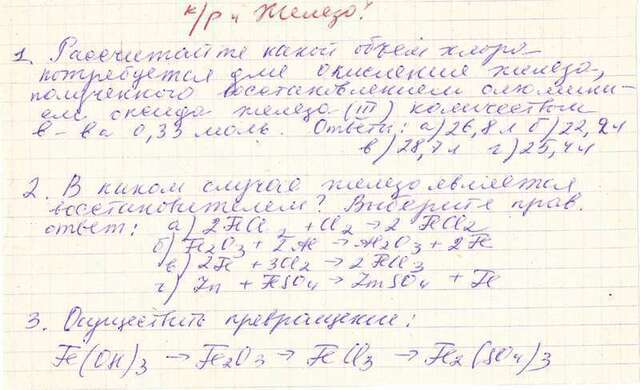 к/р "Железо".
1. Рассчитайте какой объем хлора
потребуется для окисления железа,
полученного восстановлением алюмини-
ем оксида железа (III) количеством
в-ва 0,33 моль. Ответы: а) 26,8л б) 22,2л
в) 28,7л г) 25,4л
2. В каком случае железо является
восстановителем? Выберите прав.
ответ: а) 2FeCl2 + Cl2 → 2 FeCl2
б) Fe2O3 + 2Al → Al2O3 + 2Fe
в) 2Fe + 3Cl2 → 2 FeCl3
г) Zn + FeSO4 → ZnSO4 + Fe
3. Осуществить превращение:
Fe(OH)3 → Fe2O3 → FeCl3 → Fe2(SO4)3